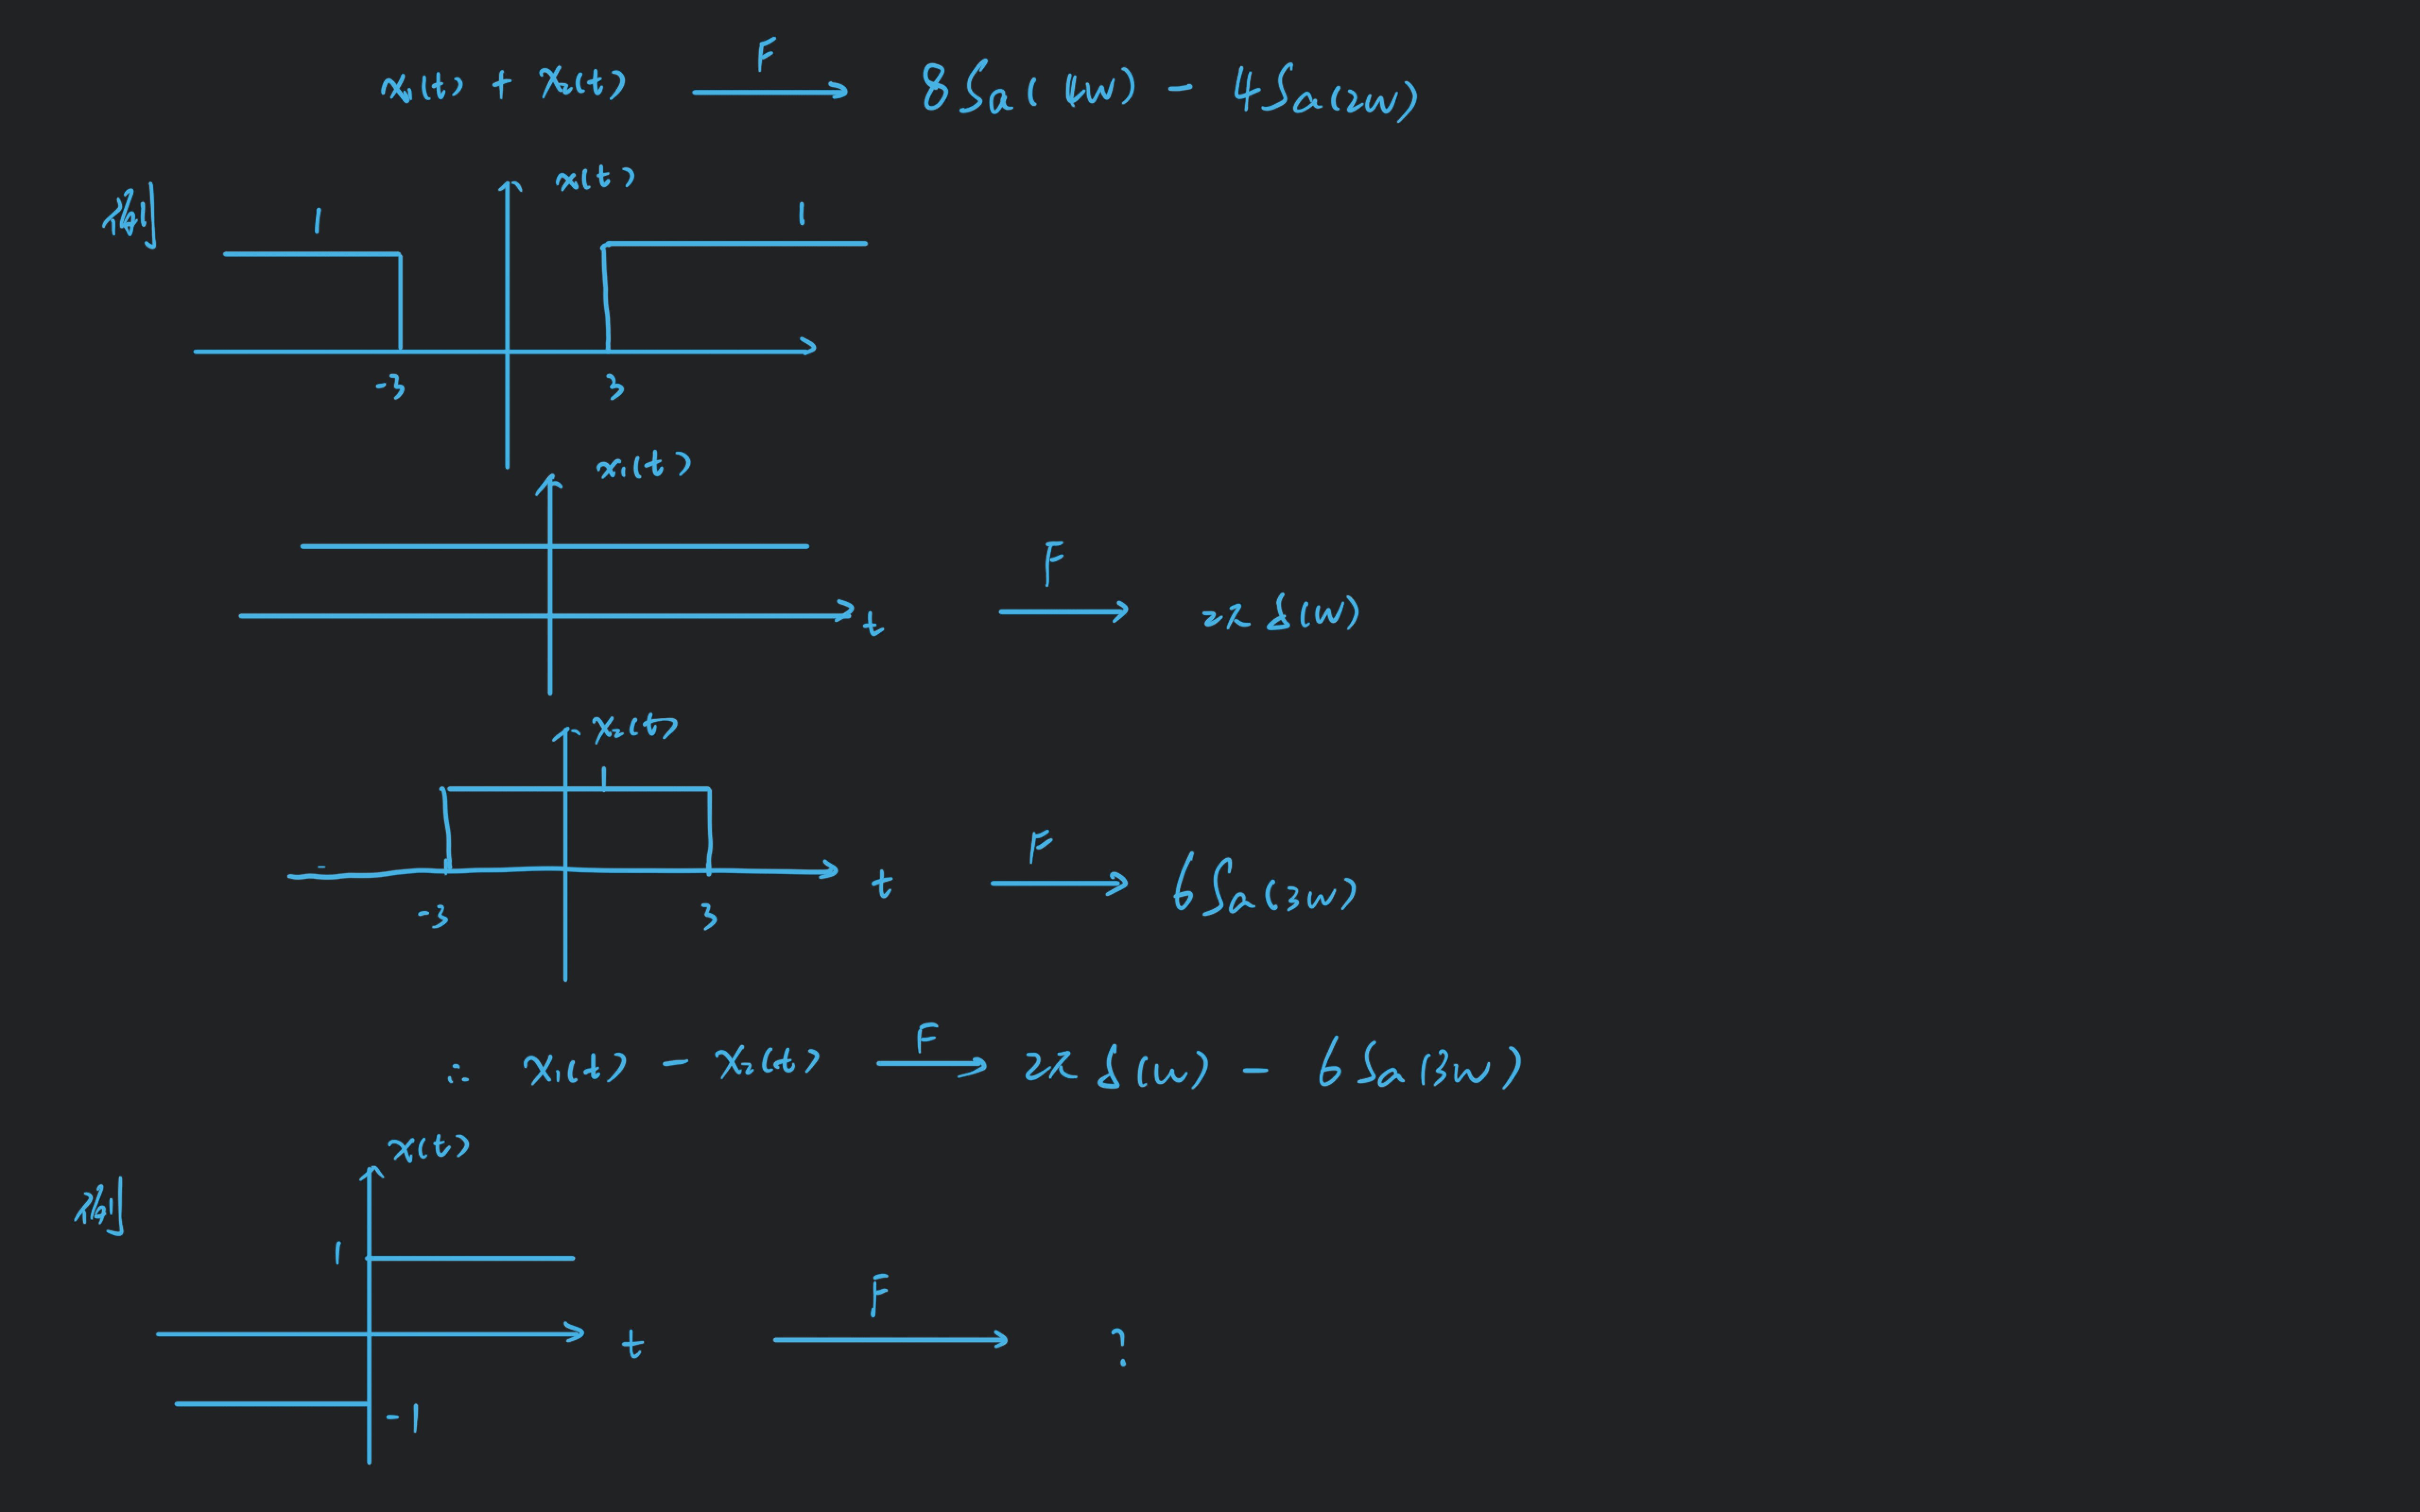 x₁(t) + x₂(t) F→ 8Sa(4ω) - 4Sa(2ω)
例 1 x(t) 1
-3 3
x₁(t)
t F→ 2π δ(ω)
x₂(t)
1
t F→ 6Sa(3ω)
-3 3
∴ x₁(t) - x₂(t) F→ 2π δ(ω) - 6Sa(3ω)
x(t)
例
1
t F→ ?
-1